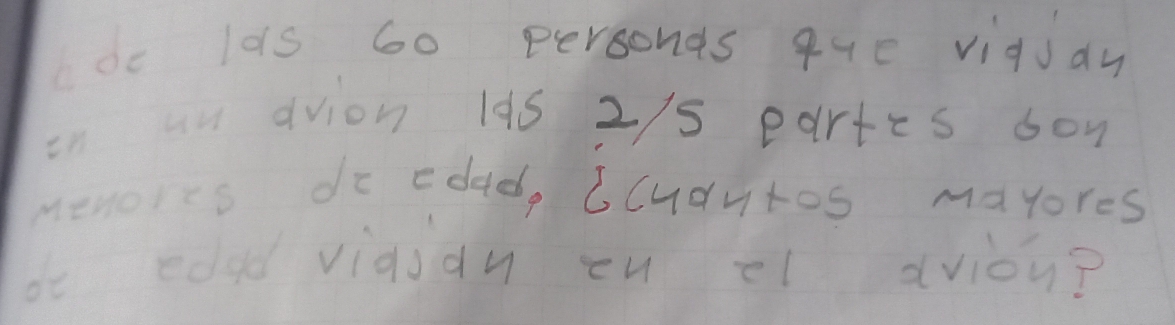 de las 60 personas que viajan
en un avion las 2/5 partes son
menores de edad, ¿cuantos mayores
de edad viajan en el avión?